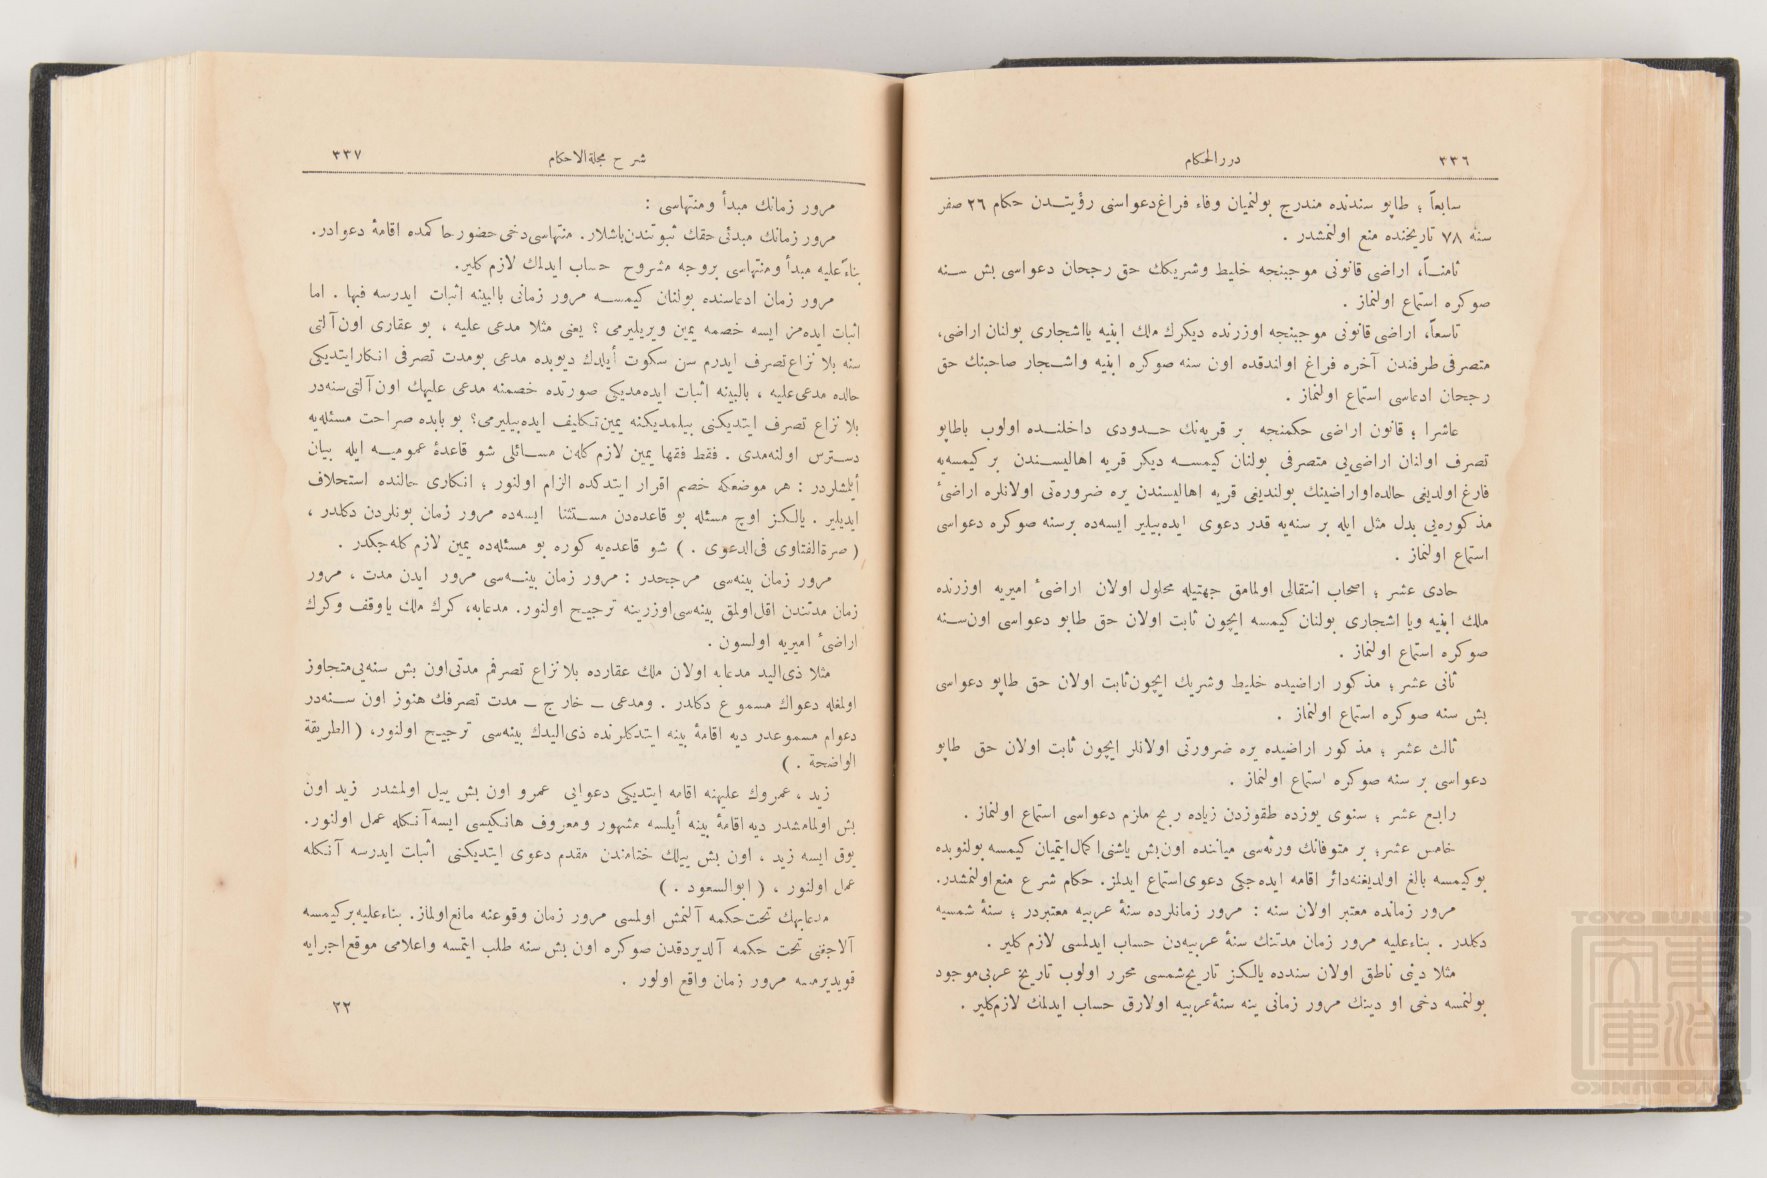 ٣٣٦
دررالحكام
سابعاً ؛ طاپو سندنده مندرج بولنميان وفاء فراغ دعواسنى رؤيتدن حكام ٢٦ صفر
سنهٔ ٧٨ تاريخنده منع اولنمشدر .
ثامناً، اراضى قانونى موجبنجه خليط وشريكك حق رجحان دعواسى بش سنه
صوكره استماع اولنماز .
تاسعاً، اراضى قانونى موجبنجه اوزرنده ديكرك ملك ابنيه يااشجارى بولنان اراضى،
متصرفى طرفندن آخره فراغ اولندقده اون سنه صوكره ابنيه واشجار صاحبنك حق
رجحان ادعاسى استماع اولنماز .
عاشرا ؛ قانون اراضى حكمنجه بر قريه‌نك حدودى داخلنده اولوب باطاپو
تصرف اولنان اراضى‌يى متصرفى بولنان كيمسه ديكر قريه اهاليسندن بر كيمسه‌يه
فارغ اولديغى حالده‌اواراضينك بولنديغى قريه اهاليسندن يره ضرورتى اولانلره اراضىٔ
مذكوره‌يى بدل مثل ايله بر سنه‌يه قدر دعوى ايده‌بيلير ايسه‌ده برسنه صوكره دعواسى
استماع اولنماز .
حادى عشر ؛ اصحاب انتقالى اولمامق جهتيله محلول اولان اراضىٔ اميريه اوزرنده
ملك ابنيه ويا اشجارى بولنان كيمسه ايچون ثابت اولان حق طاپو دعواسى اون‌سنه
صوكره استماع اولنماز .
ثانى عشر ؛ مذكور اراضيده خليط وشريك ايچون‌ثابت اولان حق طاپو دعواسى
بش سنه صوكره استماع اولنماز .
ثالث عشر ؛ مذكور اراضيده يره ضرورتى اولانلر ايچون ثابت اولان حق طاپو
دعواسى بر سنه صوكره استماع اولنماز .
رابع عشر ؛ سنوى يوزده طقوزدن زياده ربح ملزم دعواسى استماع اولنماز .
خامس عشر؛ بر متوفانك ورثه‌سى مياننده اون‌بش ياشنى‌اكمال‌ايتميان كيمسه بولنوبده
بوكيمسه بالغ اولديغنه‌دائر اقامه ايده‌جكى دعوى‌استماع ايدلمز. حكام شرع منع‌اولنمشدر.
مرور زمانده معتبر اولان سنه : مرور زمانلرده سنهٔ عربيه معتبردر ؛ سنهٔ شمسيه
دكلدر . بناءعليه مرور زمان مدتنك سنهٔ عربيه‌دن حساب ايدلمسى لازم كلير .
مثلا دينى ناطق اولان سندده يالكز تاريخ‌شمسى محرر اولوب تاريخ عربى‌موجود
بولنمسه دخى او دينك مرور زمانى ينه سنهٔ‌عربيه اولارق حساب ايدلمك لازم‌كلير .
شرح مجلةالاحكام
٣٣٧
مرور زمانك مبدأ ومنتهاسى :
مرور زمانك مبدئى‌حقك ثبوتندن‌باشلار. منتهاسى‌دخى‌حضورحاكمده اقامهٔ دعوادر.
بناءًعليه مبدأ ومنتهاسى بروجه مشروح حساب ايدلمك لازم كلير.
مرور زمان ادعاسنده بولنان كيمسه مرور زمانى باالبينه اثبات ايدرسه فبها . اما
اثبات ايده‌مز ايسه خصمه يمين ويريليرمى ؟ يعنى مثلا مدعى عليه ، بو عقارى اون‌آلتى
سنه بلا نزاع‌تصرف ايدرم سن سكوت أيلدك ديوبده مدعى بومدت تصرفى انكارايتديكى
حالده مدعى‌عليه ، بالبينه اثبات ايده‌مديكى صورتده خصمنه مدعى عليهك اون‌آلتى‌سنه‌در
بلا نزاع تصرف ايتديكنى بيلمديكنه يمين‌تكليف ايده‌بيليرمى؟ بو بابده صراحت مسئله‌يه
دسترس اولنه‌مدى . فقط فقها يمين لازم كلن مسائلى شو قاعدهٔ عموميه ايله بيان
أيلمشلردر : هر موضعكه خصم اقرار ايتدكده الزام اولنور ؛ انكارى حالنده استحلاف
ايديلير . يالكز اوچ مسئله بو قاعده‌دن مستثنا ايسه‌ده مرور زمان بونلردن دكلدر ،
( صرةالفتاوى فى‌الدعوى . ) شو قاعده‌يه كوره بو مسئله‌ده يمين لازم كله‌جكدر .
مرور زمان بينه‌سى مرجحدر : مرور زمان بينه‌سى مرور ايدن مدت ، مرور
زمان مدتندن اقل‌اولمق بينه‌سى‌اوزرينه ترجيح اولنور. مدعابه، كرك ملك ياوقف وكرك
اراضىٔ اميريه اولسون .
مثلا ذى‌اليد مدعابه اولان ملك عقارده بلا نزاع تصرفم مدتى‌اون بش سنه‌يى‌متجاوز
اولمغله دعواك مسموع دكلدر . ومدعى ــ خارج ــ مدت تصرفك هنوز اون سنه‌در
دعوام مسموعدر ديه اقامهٔ بينه ايتدكلرنده ذى‌اليدك بينه‌سى ترجيح اولنور، ( الطريقة
الواضحة . )
زيد ، عمروك عليهنه اقامه ايتديكى دعوايى عمرو اون بش ييل اولمشدر زيد اون
بش اولمامشدر ديه اقامهٔ بينه أيلسه مشهور ومعروف هانكيسى ايسه‌آنكله عمل اولنور.
يوق ايسه زيد ، اون بش ييلك ختامندن مقدم دعوى ايتديكنى اثبات ايدرسه آنكله
عمل اولنور ، ( ابوالسعود . )
مدعابهك تحت‌حكمه آلنمش اولمسى مرور زمان وقوعنه مانع‌اولماز. بناءعليه‌بركيمسه
آلاجغنى تحت حكمه آلديردقدن صوكره اون بش‌سنه طلب ايتمسه واعلامى موقع‌اجرايه
قويديرمسه مرور زمان واقع اولور .
٢٢
TOYO BUNKO
東洋文庫
TOYO BUNKO